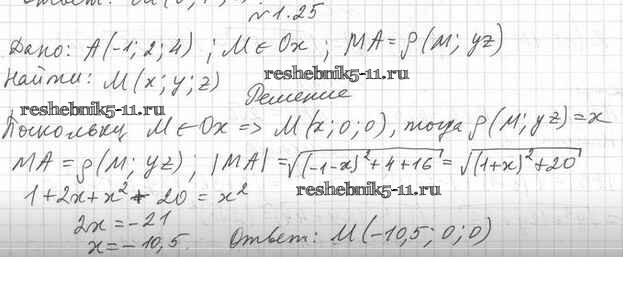 Ответ: M(
№1.25
Дано: A(-1; 2; 4) ; M ∈ Ox ; MA = ρ(M; yz)
Найти: M(x; y; z)
reshebnik5-11.ru
Решение
reshebnik5-11.ru
Поскольку M ∈ Ox => M(x; 0; 0), тогда ρ(M; yz) = x
MA = ρ(M; yz) ; |MA| = √((-1-x)² + 4 + 16) = √((1+x)² + 20)
reshebnik5-11.ru
1 + 2x + x² + 20 = x²
2x = -21
x = -10,5.
Ответ: M(-10,5; 0; 0)